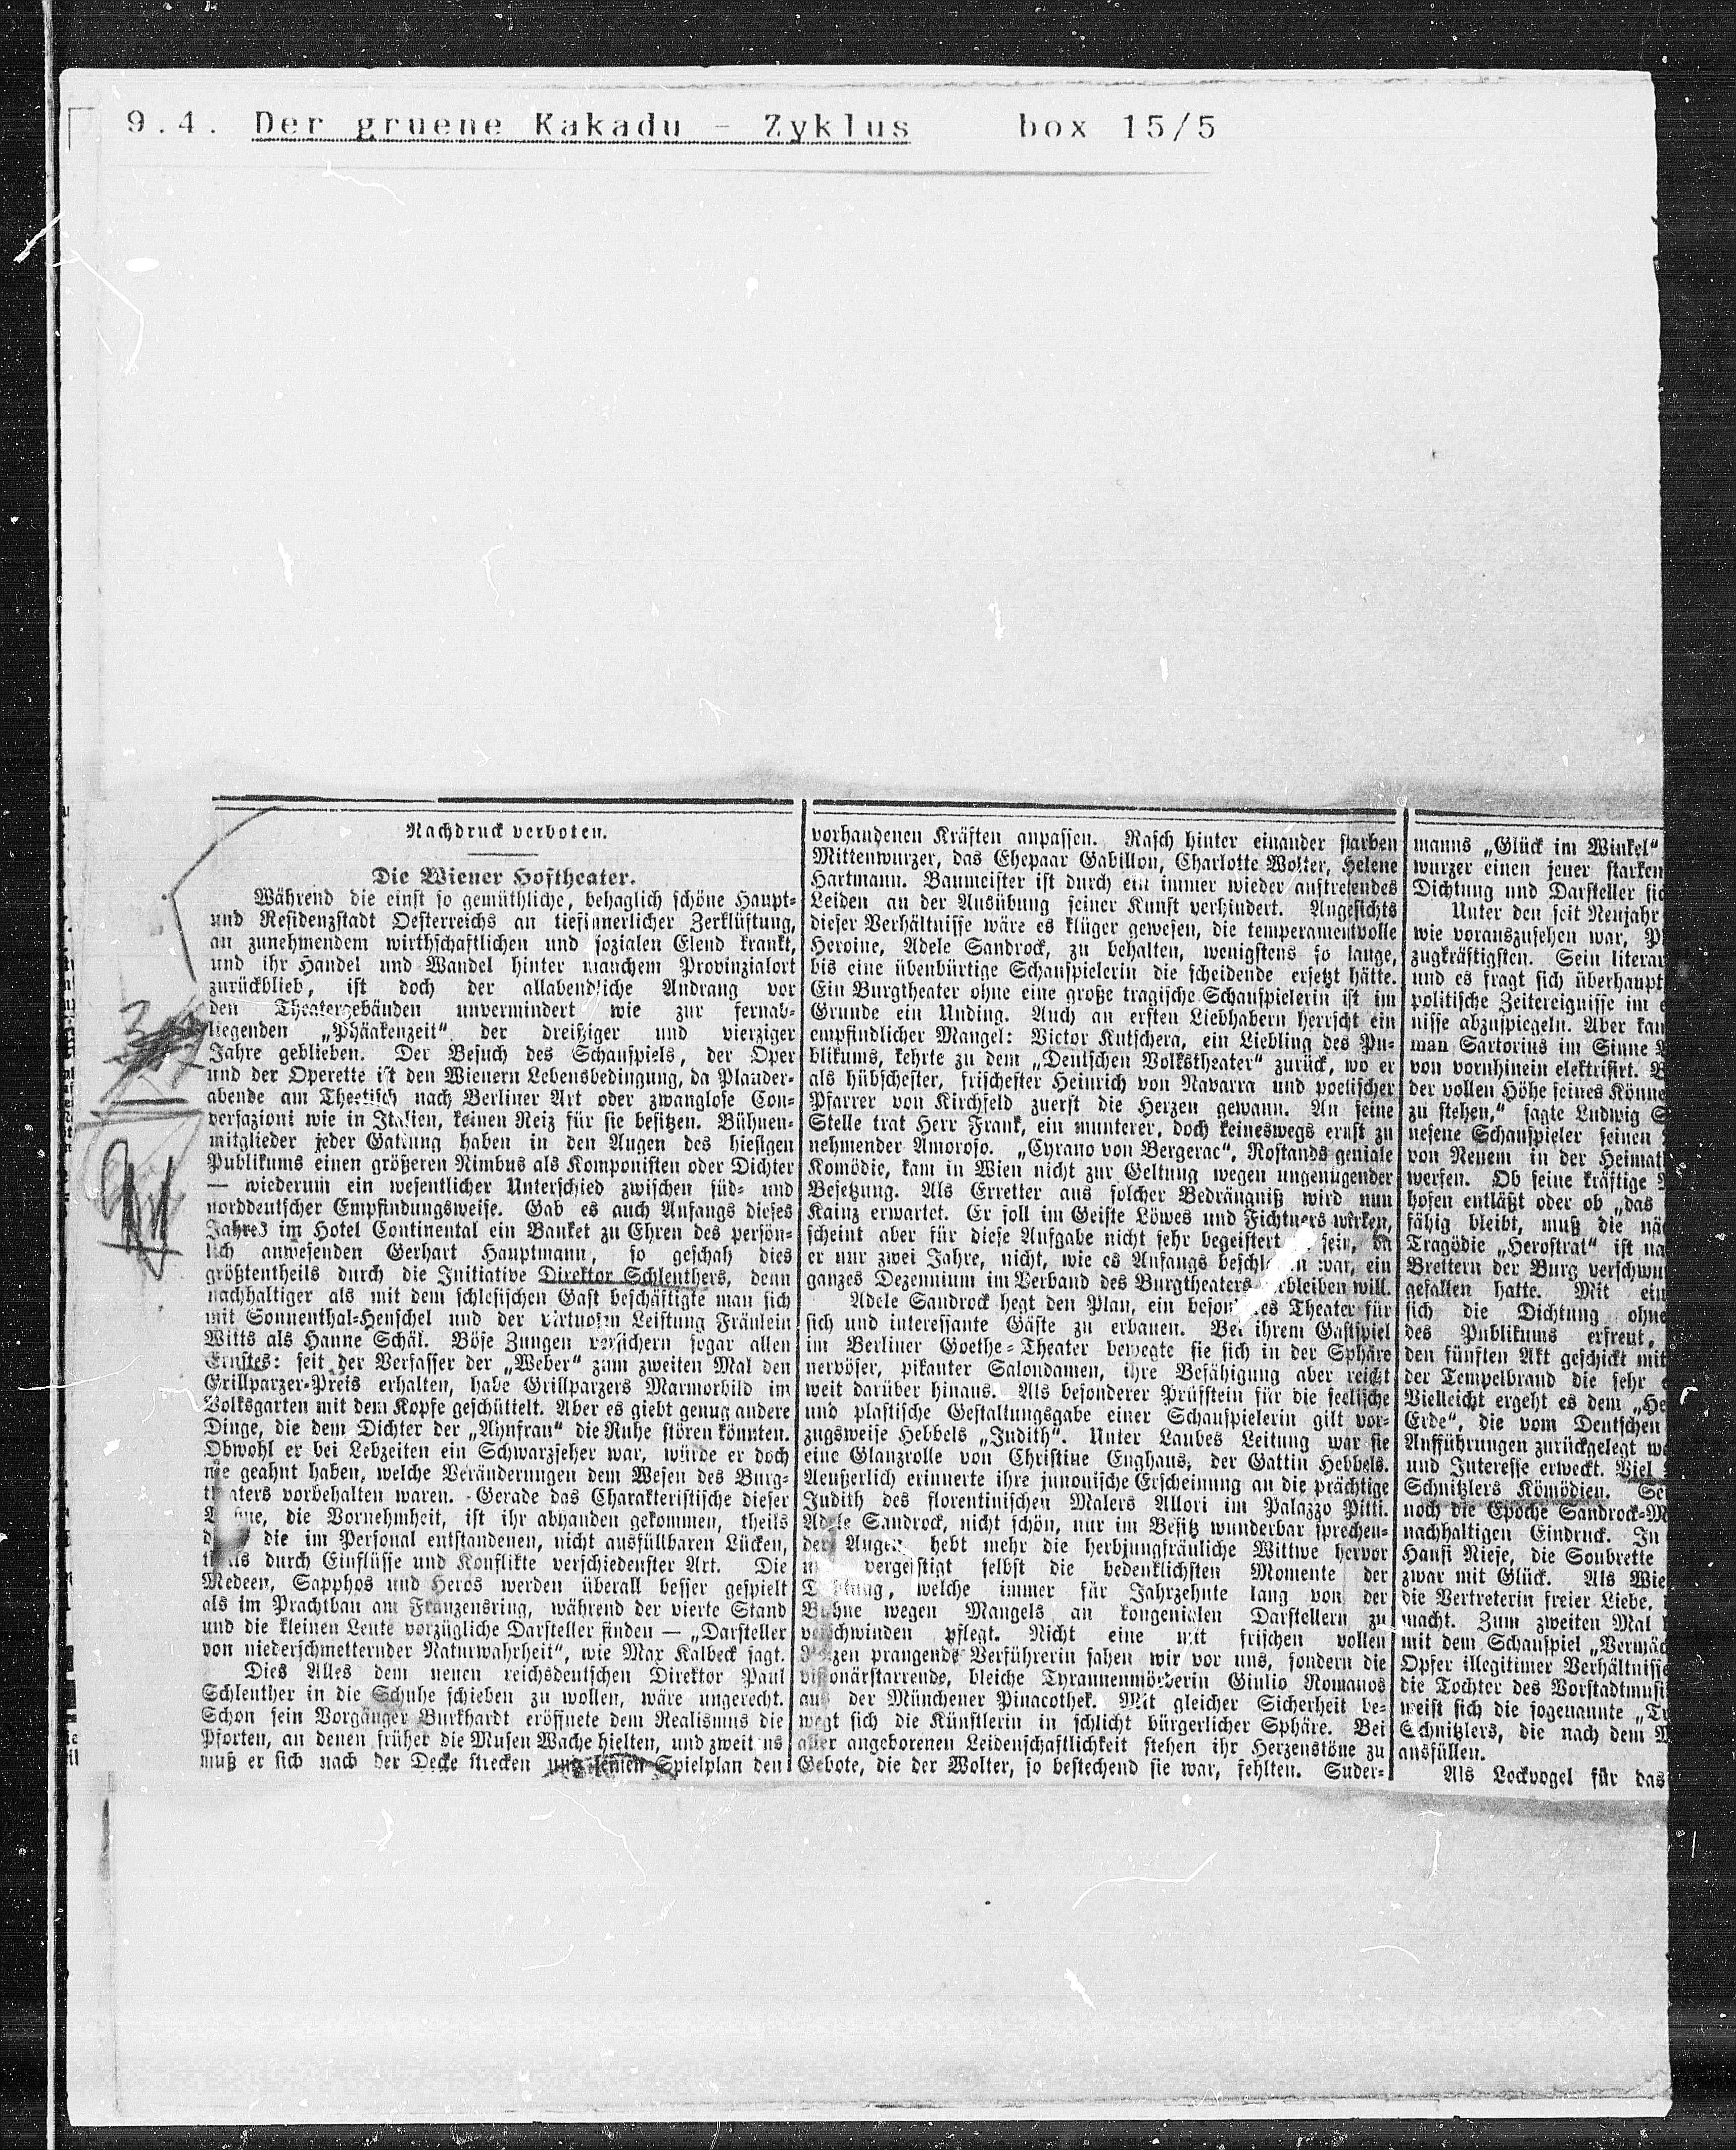 9.4. Der gruene Kakadu - Zyklus box 15/5
Nachdruck verboten.
Die Wiener Hoftheater.
Während die einst so gemüthliche, behaglich schöne Haupt-
und Residenzstadt Oesterreichs an tiefinnerlicher Zerklüftung,
an zunehmendem wirthschaftlichen und sozialen Elend krankt,
und ihr Handel und Wandel hinter manchem Provinzialort
zurückblieb, ist doch der allabendliche Andrang vor
den Theatergebänden unvermindert wie zur fernab-
liegenden „Phäakenzeit“ der dreißiger und vierziger
Jahre geblieben. Der Besuch des Schauspiels, der Oper
und der Operette ist den Wienern Lebensbedingung, da Plauder-
abende am Theetisch nach Berliner Art oder zwanglose Con-
versazioni wie in Italien, keinen Reiz für sie besitzen. Bühnen-
mitglieder jeder Gattung haben in den Augen des hiesigen
Publikums einen größeren Nimbus als Komponisten oder Dichter
— wiederum ein wesentlicher Unterschied zwischen süd- und
norddeutscher Empfindungsweise. Gab es auch Anfangs dieses
Jahres im Hotel Continental ein Banket zu Ehren des persön-
lich anwesenden Gerhart Hauptmann, so geschah dies
größtentheils durch die Initiative Direktor Schlenthers, denn
nachhaltiger als mit dem schlesischen Gast beschäftigte man sich
mit Sonnenthal-Henschel und der virtuosen Leistung Fräulein
Witts als Hanne Schäl. Böse Zungen versichern sogar allen
Ernstes: seit der Verfasser der „Weber“ zum zweiten Mal den
Grillparzer-Preis erhalten, habe Grillparzers Marmorbild im
Volksgarten mit dem Kopfe geschüttelt. Aber es giebt genug andere
Dinge, die dem Dichter der „Ahnfrau“ die Ruhe stören könnten.
Obwohl er bei Lebzeiten ein Schwarzseher war, würde er doch
nie geahnt haben, welche Veränderungen dem Wesen des Burg-
theaters vorbehalten waren. Gerade das Charakteristische dieser
die Vornehmheit, ist ihr abhanden gekommen, theils
die im Personal entstandenen, nicht ausfüllbaren Lücken,
theils durch Einflüsse und Konflikte verschiedenster Art. Die
Medeen, Sapphos und Heros werden überall besser gespielt
als im Prachtbau am Franzensring, während der vierte Stand
und die kleinen Leute vorzügliche Darsteller finden — „Darsteller
von niederschmetternder Naturwahrheit“, wie Max Kalbeck sagt.
Dies Alles dem neuen reichsdeutschen Direktor Paul
Schlenther in die Schuhe schieben zu wollen, wäre ungerecht.
Schon sein Vorgänger Burkhardt eröffnete dem Realismus die
Pforten, an denen früher die Musen Wache hielten, und zweitens
muß er sich nach der Decke strecken und seinen Spielplan den
vorhandenen Kräften anpassen. Rasch hinter einander starben
Mittenwurzer, das Ehepaar Gabillon, Charlotte Wolter, Helene
Hartmann. Baumeister ist durch ein immer wieder auftretendes
Leiden an der Ausübung seiner Kunst verhindert. Angesichts
dieser Verhältnisse wäre es klüger gewesen, die temperamentvolle
Heroine, Adele Sandrock, zu behalten, wenigstens so lange,
bis eine übenbürtige Schauspielerin die scheidende ersetzt hätte.
Ein Burgtheater ohne eine große tragische Schauspielerin ist im
Grunde ein Unding. Auch an ersten Liebhabern herrscht ein
empfindlicher Mangel: Victor Kutschera, ein Liebling des Pu-
blikums, kehrte zu dem „Deutschen Volkstheater“ zurück, wo er
als hübschester, frischester Heinrich von Navarra und poetischer
Pfarrer von Kirchfeld zuerst die Herzen gewann. An seine
Stelle trat Herr Frank, ein munterer, doch keineswegs ernst zu
nehmender Amoroso. „Cyrano von Bergerac“, Rostands geniale
Komödie, kam in Wien nicht zur Geltung wegen ungenügender
Besetzung. Als Erretter aus solcher Bedrängniß wird nun
Kainz erwartet. Er soll im Geiste Löwes und Fichtners wirken,
scheint aber für diese Aufgabe nicht sehr begeistert sein, da
er nur zwei Jahre, nicht, wie es Anfangs beschlossen war, ein
ganzes Dezennium im Verband des Burgtheaters verbleiben will.
Adele Sandrock hegt den Plan, ein besonderes Theater für
sich und interessante Gäste zu erbauen. Bei ihrem Gastspiel
im Berliner Goethe-Theater bewegte sie sich in der Sphäre
nervöser, pikanter Salondamen, ihre Befähigung aber reicht
weit darüber hinaus. Als besonderer Prüfstein für die seelische
und plastische Gestaltungsgabe einer Schauspielerin gilt vor-
zugsweise Hebbels „Judith“. Unter Laubes Leitung war sie
eine Glanzrolle von Christine Enghaus, der Gattin Hebbels.
Aeußerlich erinnerte ihre junonische Erscheinung an die prächtige
Judith des florentinischen Malers Allori im Palazzo Pitti.
Adele Sandrock, nicht schön, nur im Besitz wunderbar sprechen-
der Augen hebt mehr die herbjungfräuliche Wittwe hervor
vergeistigt selbst die bedenklichsten Momente der
Dichtung, welche immer für Jahrzehnte lang von der
Bühne wegen Mangels an kongenialen Darstellern zu
verschwinden pflegt. Nicht eine mit frischen vollen
Reizen prangende Verführerin sahen wir vor uns, sondern die
visionärstarrende, bleiche Tyrannenmörderin Giulio Romanos
aus der Münchener Pinacothek. Mit gleicher Sicherheit be-
wegt sich die Künstlerin in schlicht bürgerlicher Sphäre. Bei
aller angeborenen Leidenschaftlichkeit stehen ihr Herzenstöne zu
Gebote, die der Wolter, so bestechend sie war, fehlten. Suder-
manns „Glück im Winkel“
wurzer einen jener starken
Dichtung und Darsteller sic
Unter den seit Neujahr
wie vorauszusehen war, P
zugkräftigsten. Sein literar
und es fragt sich überhaupt
politische Zeitereignisse im
nisse abzuspiegeln. Aber kan
man Sartorius im Sinne
von vornhinein elektrisirt.
der vollen Höhe seines Könne
zu stehen,“ sagte Ludwig
nesene Schauspieler seinen
von Neuem in der Heimat
werfen. Ob seine kräftige
hofen entläßt oder ob „das
fähig bleibt, muß die nä
Tragödie „Herostrat“ ist na
Brettern der Burg verschwu
gefallen hatte. Mit ein
sich die Dichtung ohne
des Publikums erfreut,
den fünften Akt geschickt mit
der Tempelbrand die sehr
Vielleicht ergeht es dem „He
Erde“, die vom Deutschen
Aufführungen zurückgelegt we
und Interesse erweckt. Viel
Schnitzlers Komödien. Se
noch die Epoche Sandrock-M
nachhaltigen Eindruck. In
Hansi Niese, die Soubrette
zwar mit Glück. Als Wie
die Vertreterin freier Liebe,
macht. Zum zweiten Mal
mit dem Schauspiel „Vermäc
Opfer illegitimer Verhältnisse
die Tochter des Vorstadtmusi
weist sich die sogenannte „Tr
Schnitzlers, die nach dem M
ausfüllen.
Als Lockvogel für das